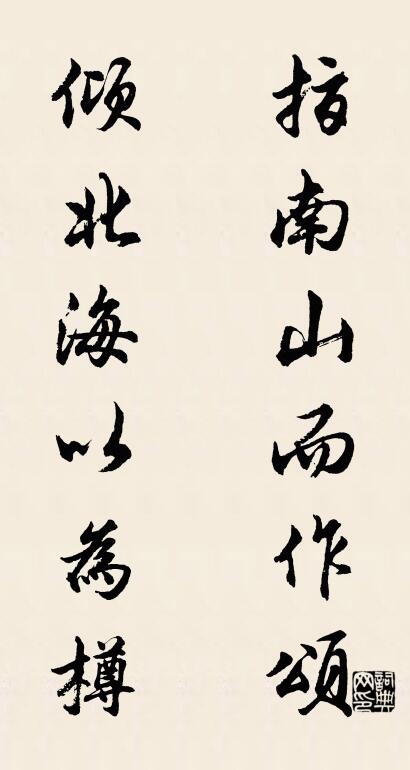 指南山而作頌
傾北海以為樽
詞典网印